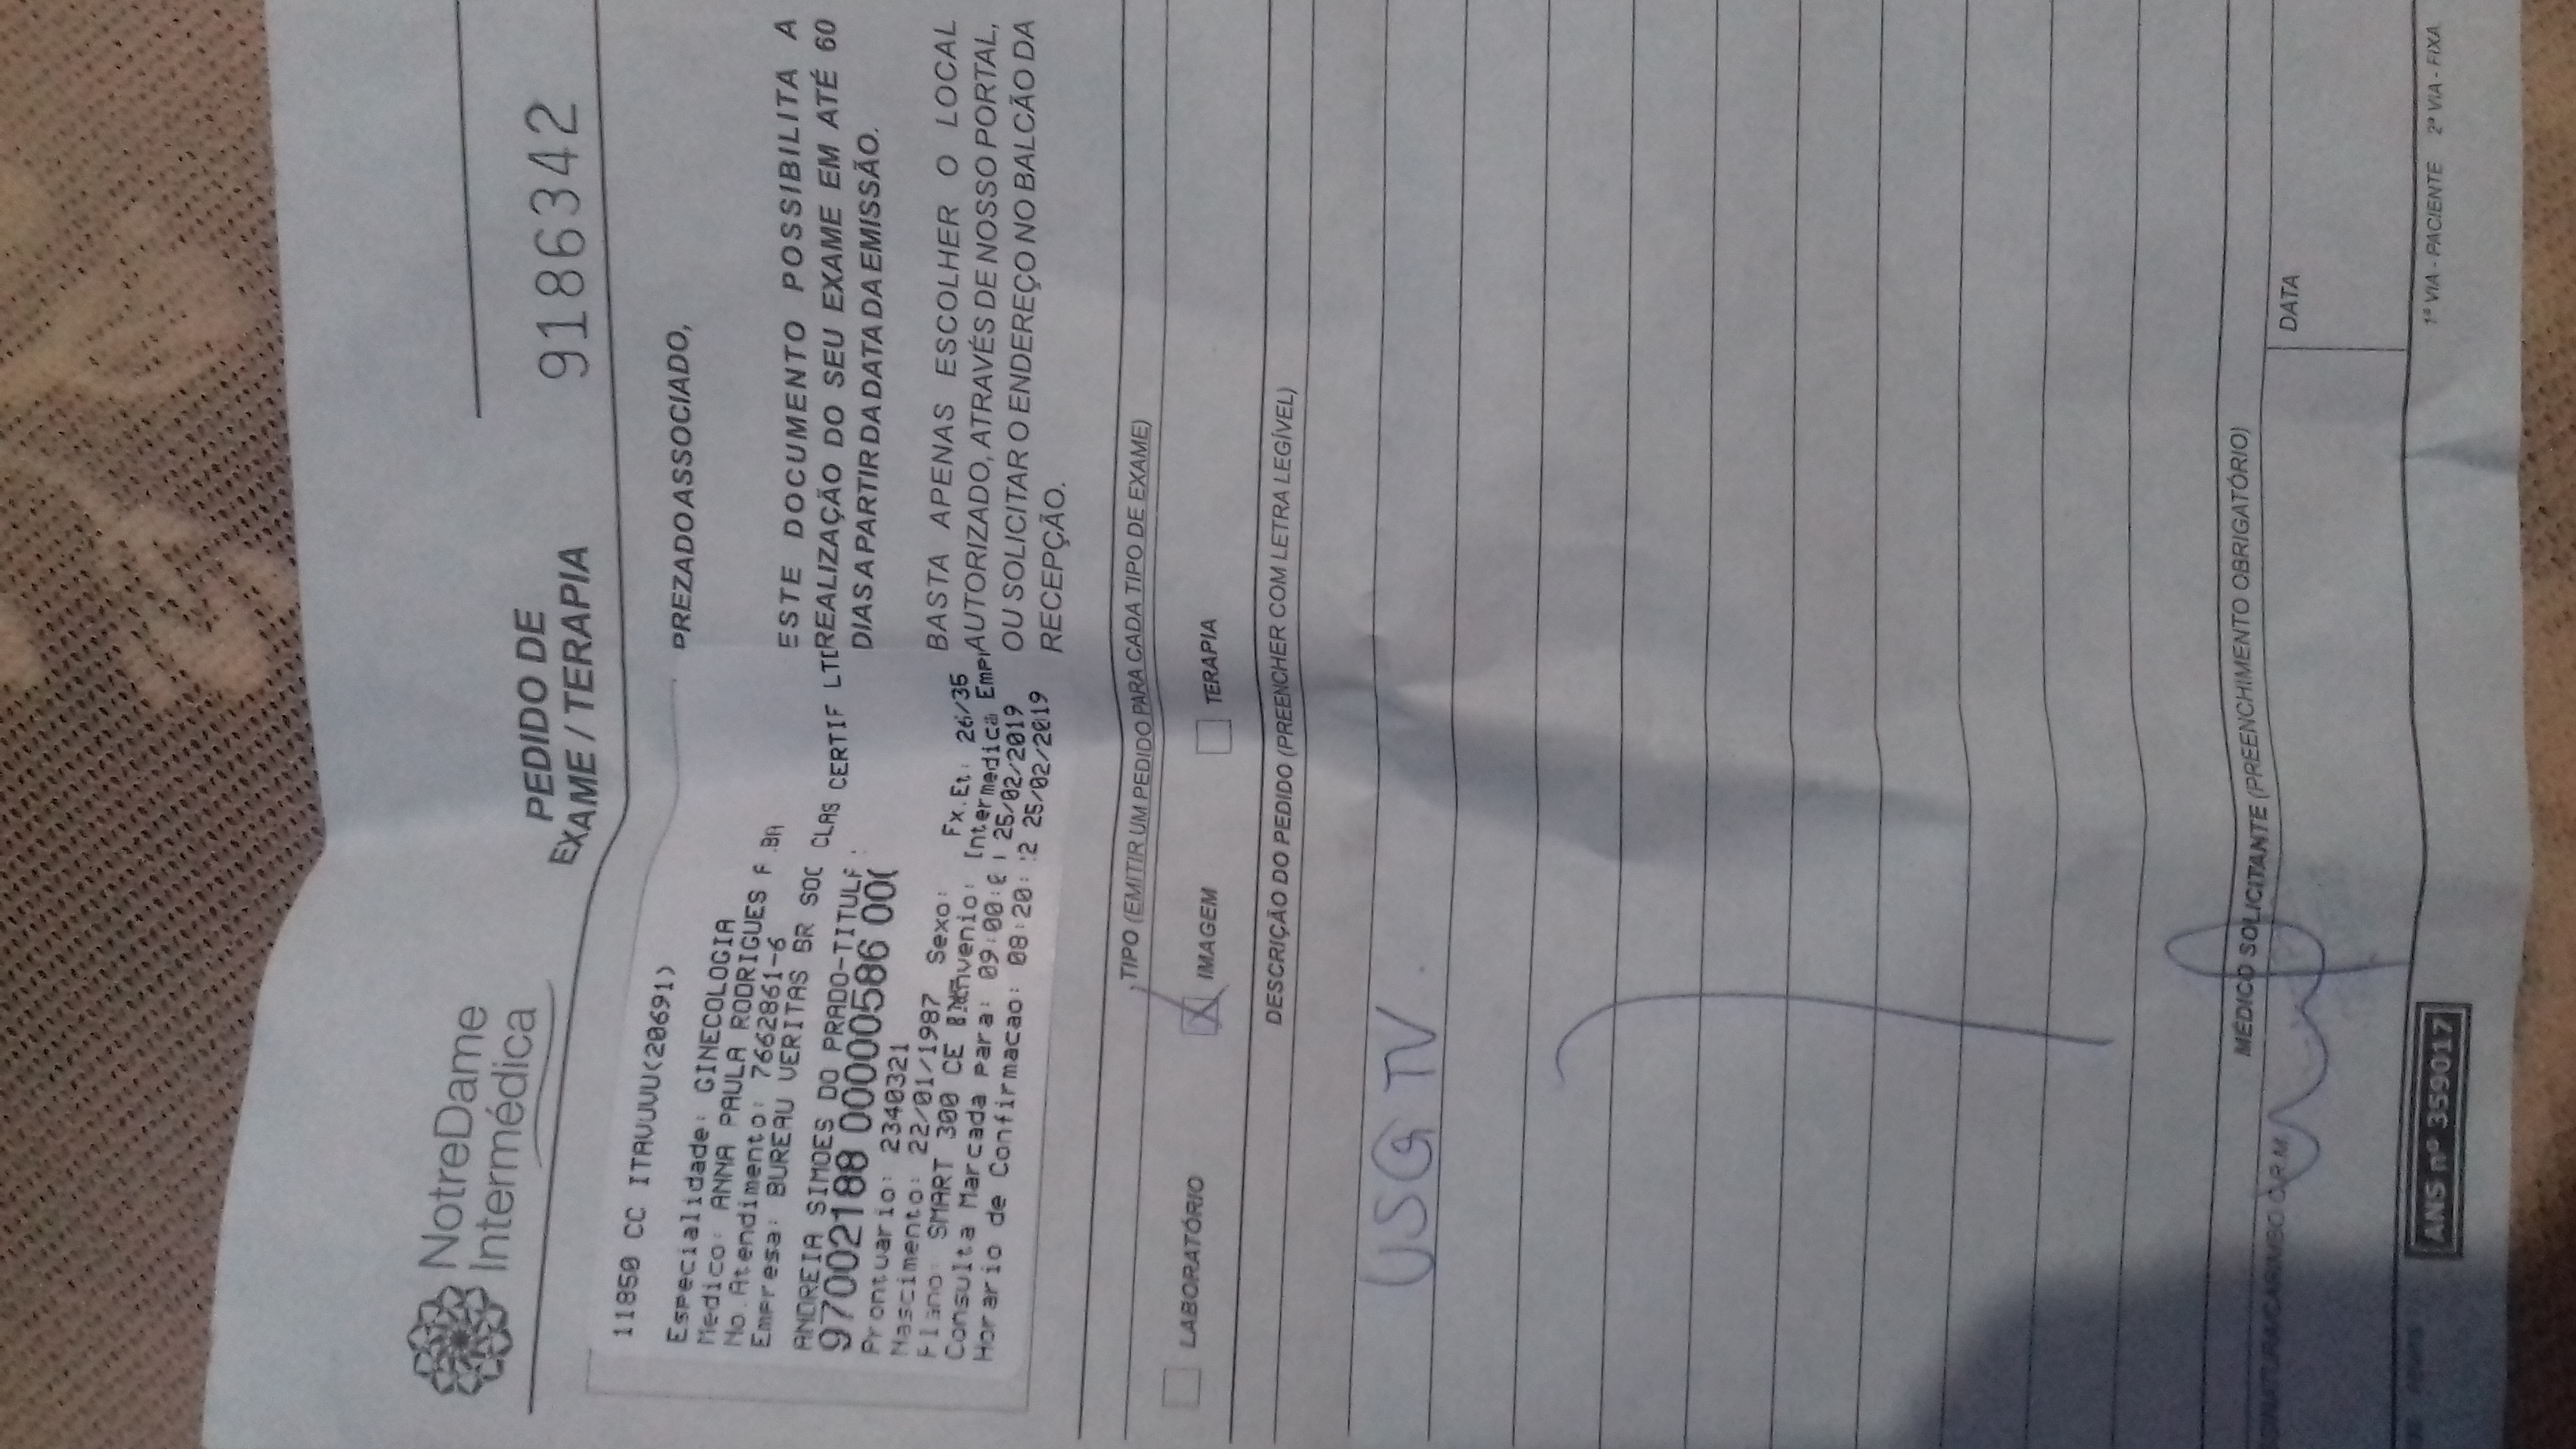 NotreDame
Intermédica
PEDIDO DE
EXAME / TERAPIA
9186342
11850 CC ITAVUVU(20691)
Especialidade: GINECOLOGIA
Medico: ANNA PAULA RODRIGUES F .BA
No.Atendimento: 7662861-6
Empresa: BUREAU VERITAS BR SOC CLAS CERTIF LTD
ANDREIA SIMOES DO PRADO-TITULA
97002188 00000586 00
Prontuario: 2340321
Nascimento: 22/01/1987 Sexo: Fx.Et: 26/35
Plano: SMART 300 CE Intermedica Emp
Consulta Marcada para: 09:00: 25/02/2019
Horario de Confirmacao: 08:20: 2 25/02/2019
PREZADO ASSOCIADO,
ESTE DOCUMENTO POSSIBILITA A
REALIZAÇÃO DO SEU EXAME EM ATÉ 60
DIAS A PARTIR DA DATA DA EMISSÃO.
BASTA APENAS ESCOLHER O LOCAL
AUTORIZADO, ATRAVÉS DE NOSSO PORTAL,
OU SOLICITAR O ENDEREÇO NO BALCÃO DA
RECEPÇÃO.
TIPO (EMITIR UM PEDIDO PARA CADA TIPO DE EXAME)
LABORATÓRIO X IMAGEM TERAPIA
DESCRIÇÃO DO PEDIDO (PREENCHER COM LETRA LEGÍVEL)
USG TV.
MÉDICO SOLICITANTE (PREENCHIMENTO OBRIGATÓRIO)
SSINATURA/CARIMBO C.R.M. DATA
ANS nº 359017
1ª VIA - PACIENTE 2ª VIA - FIXA